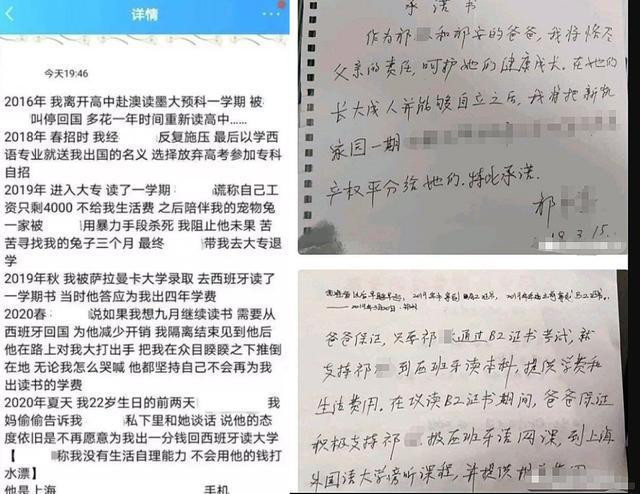 详情
今天19:46
2016年 我离开高中赴澳读墨大预科一学期 被
叫停回国 多花一年时间重新读高中……
2018年 春招时 我经 反复施压 最后以学西
语专业就送我出国的名义 选择放弃高考参加专科
自招
2019年 进入大专 读了一学期 谎称自己工
资只剩4000 不给我生活费 之后陪伴我的宠物兔
一家被 用暴力手段杀死 我阻止他未果 苦
苦寻找我的兔子三个月 最终 带我去大专退
学
2019年秋 我被萨拉曼卡大学录取 去西班牙读了
一学期书 当时他答应为我出四年学费
2020春 说如果我想九月继续读书 需要从
西班牙回国 为他减少开销 我隔离结束见到他后
他在路上对我大打出手 把我在众目睽睽之下推倒
在地 无论我怎么哭喊 他都坚持自己不会再为我
出读书的学费
2020年夏天 我22岁生日的前两天 我
妈偷偷告诉我 私下里和她谈话 说他的态
度依旧是不再愿意为我出一分钱回西班牙读大学
【 称我没有生活自理能力 不会用他的钱打
水漂】
他是上海 手机
承诺书
作为祁 和祁安的爸爸,我将恪尽
父亲的责任,呵护她们健康成长。在她们
长大成人并能够自立之后,我将把新凯
家园一期
产权平分给她们。特此承诺。
祁
3.15.
爸爸保证,只要祁 通过B2证书考试,就
支持祁 到西班牙读本科,提供学费和
生活费用。在攻读B2证书期间,爸爸保证
积极支持祁 报西班牙语网课,到上海
外国语大学旁听课程,并提供